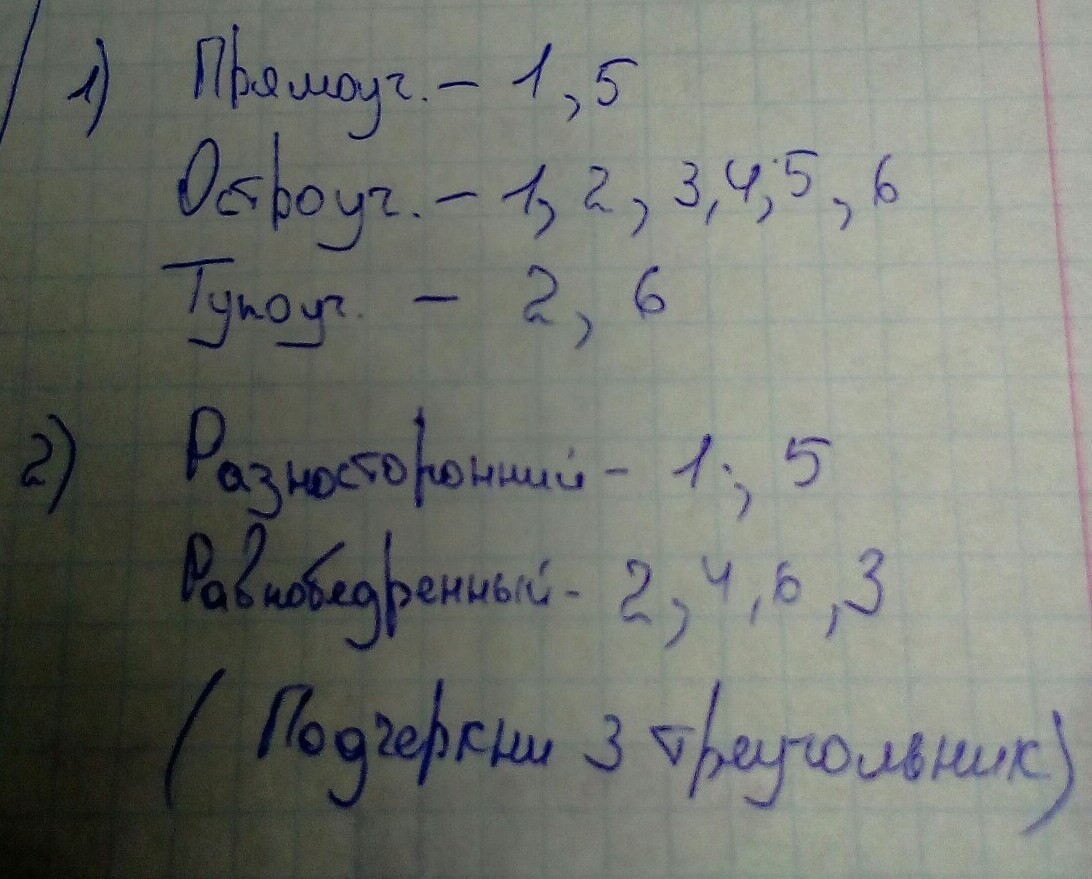 1) Прямоуг. - 1, 5
Остроуг. - 1, 2, 3, 4, 5, 6
Тупоуг. - 2, 6
2) Разносторонний - 1; 5
Равнобедренный - 2, 4, 6, 3
(Подчеркни 3 треугольник)